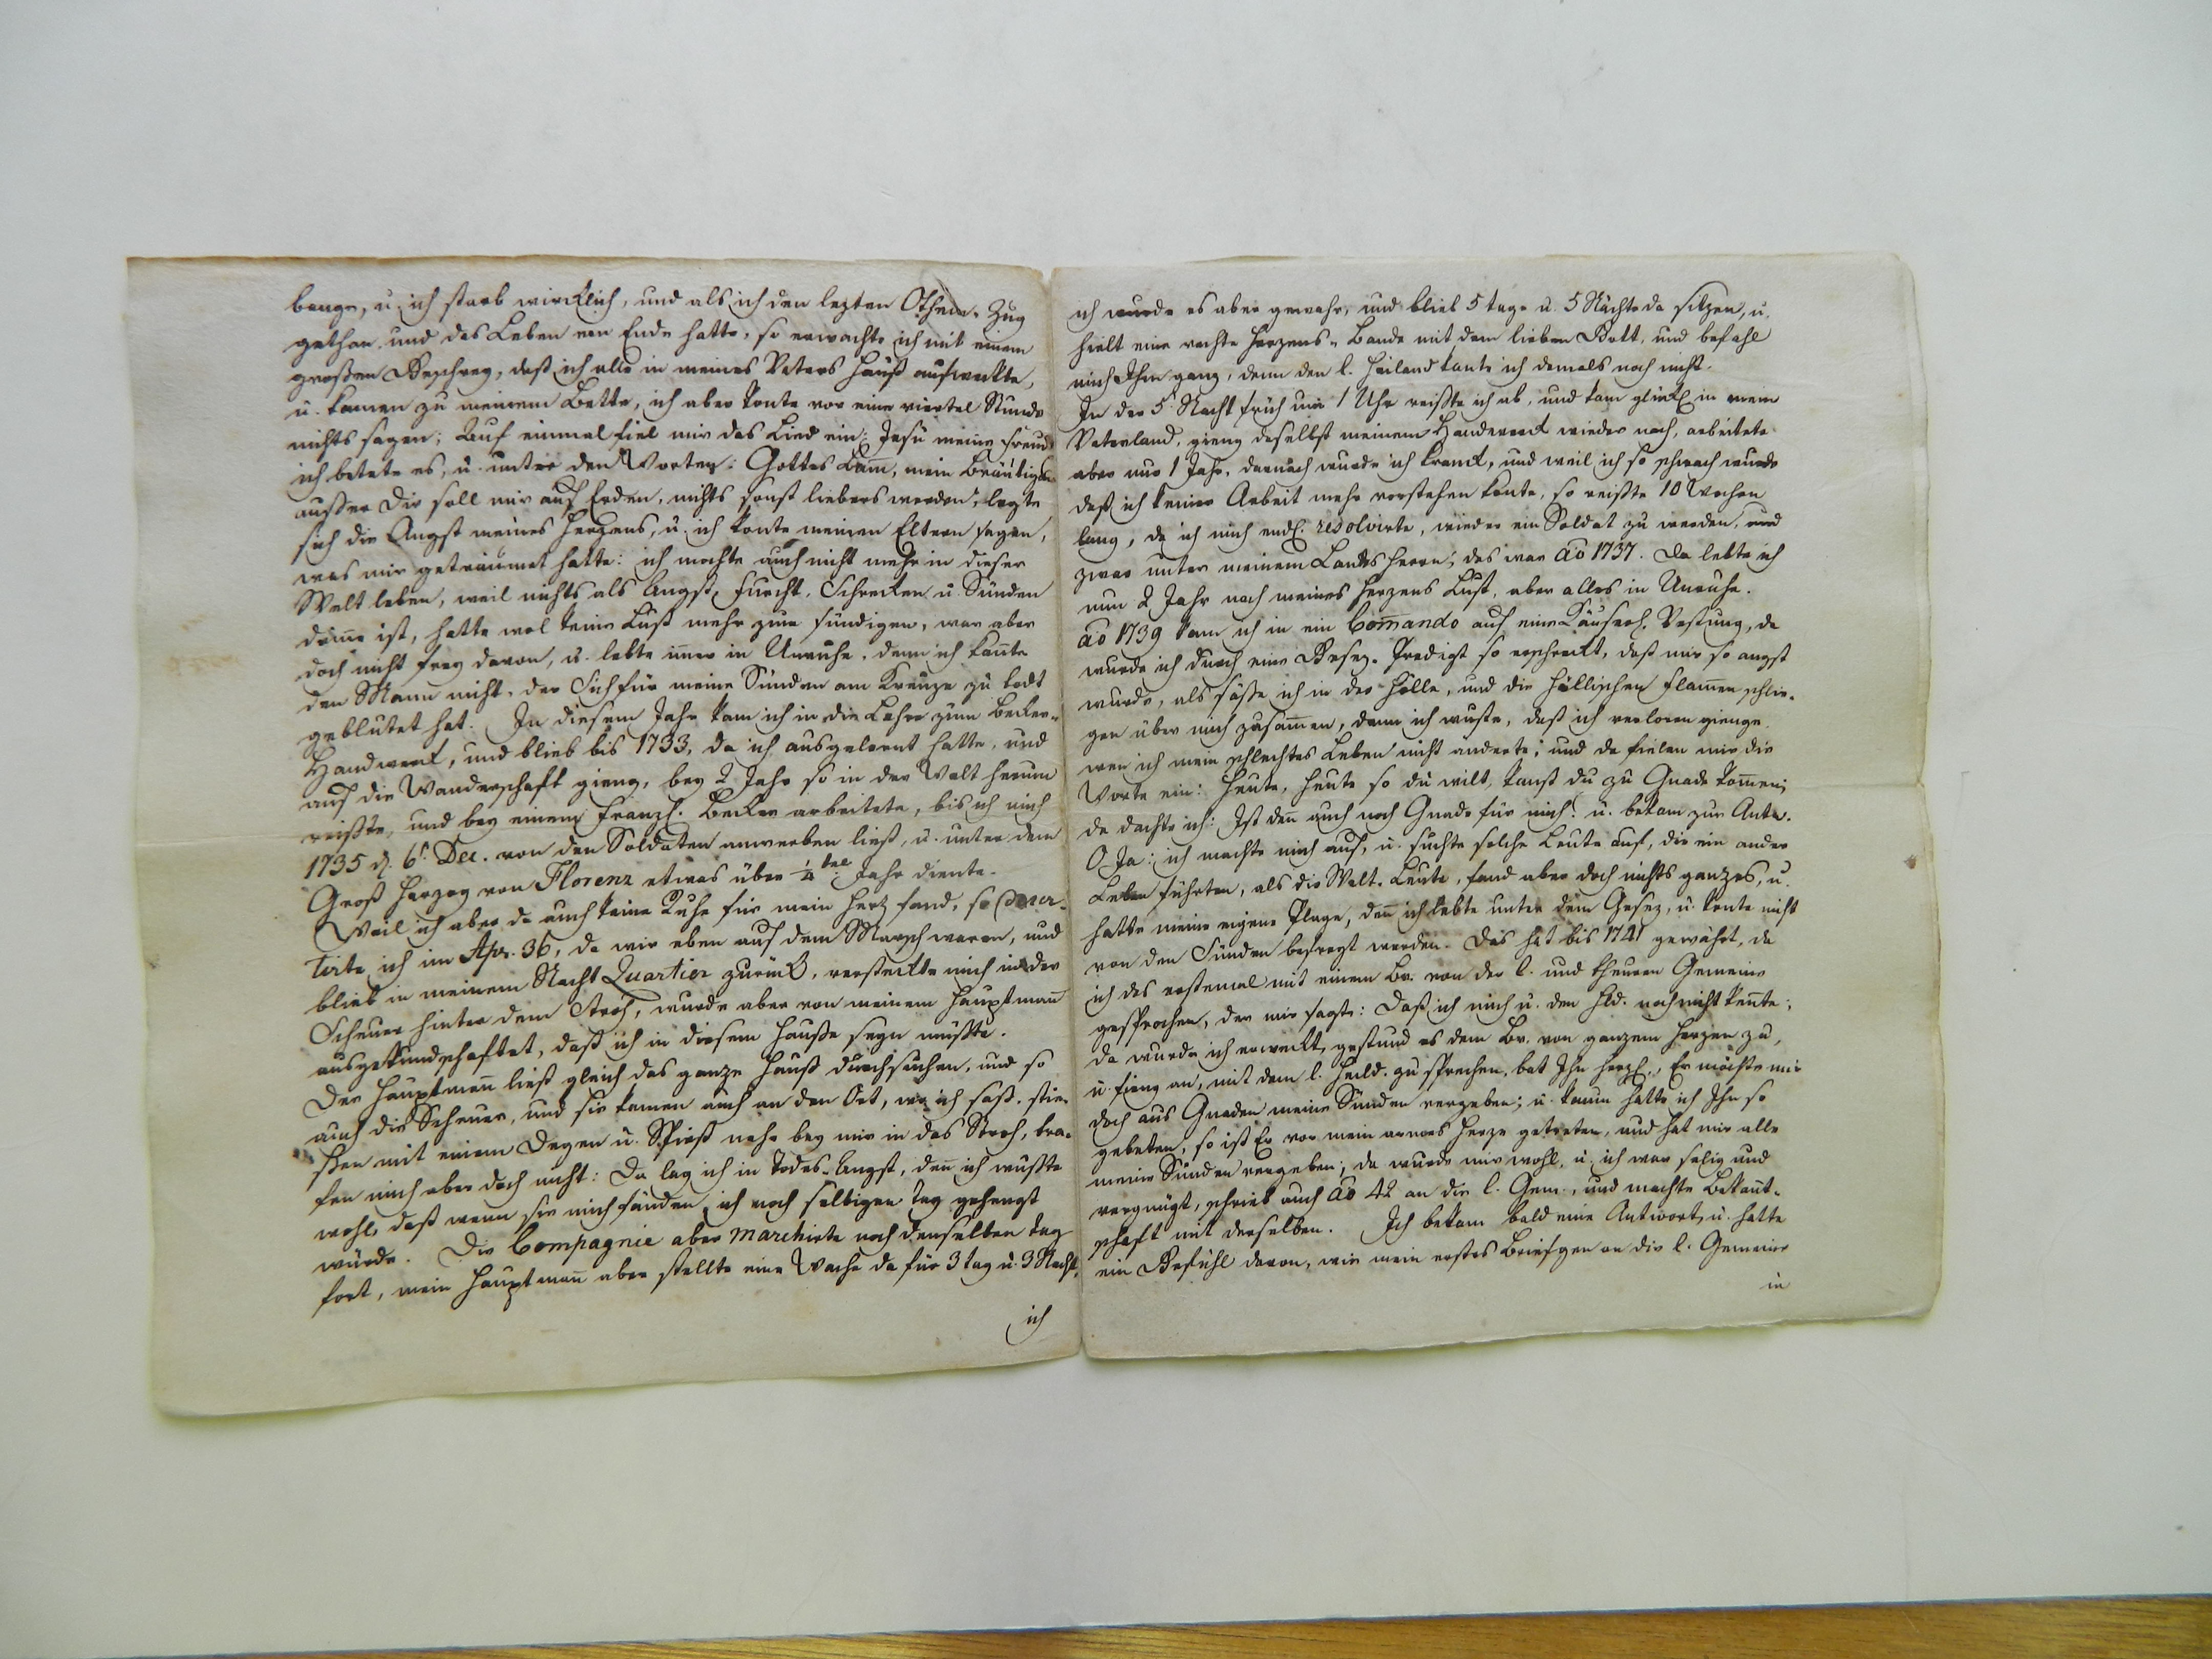 bange, u. ich starb wircklich, und als ich den lezten Othem-Zug
gethan und das Leben ein Ende hatte, so erwachte ich mit einem
großen Geschrey, daß ich alle in meines Vaters Hauß aufweckte,
u. kamen zu meinem Bette, ich aber konte vor eine viertel Stunde
nichts sagen; Auf einmal fiel mir das Lied ein: Jesu meine Freud
ich betete es, u. unter den Worten: Gottes Lam̅, mein Bräutigam
außer Dir soll mir auf Erden, nichts sonst liebers werden, legte
sich die Angst meines Herzens, u. ich konte meinen Eltern sagen,
was mir geträumet hatte: ich mochte auch nicht mehr in dieser
Welt leben, weil nichts als Angst, Furcht, Schrecken u. Sünden
drinne ist, hatte wol keine Lust mehr zum sündigen, war aber
doch nicht frey davon, u. lebte im̅er in Unruhe, denn ich kan̅te
den Mann nicht, der Sich für meine Sünden am Kreuze zu todt
geblutet hat. In diesem Jahr kam ich in die Lehre zum Becker-
Handwerck, und blieb bis 1733, da ich ausgelernt hatte, und
auf die Wanderschaft gieng, bey 2 Jahr so in der Welt herum
reißte, und bey einem Franzs. Becker arbeitete, bis ich mich
1735 d. 6t. Dec. von den Soldaten anwerben ließ, u. unter dem
Groß Herzog von Florenz etwas über ¼tel Jahr diente.
Weil ich aber da auch keine Ruhe für mein Hertz fand, so deser-
tirte ich im Apr. 36, da wir eben auf dem Marsch waren, und
blieb in meinem Nacht Quartier zurück, versteckte mich in der
Scheuer hinter dem Stroh, wurde aber von meinem Hauptman̅
ausgekundschaftet, daß ich in diesem Hauße seyn müßte.
Der Hauptman̅ ließ gleich das ganze Hauß durchsuchen, und so
auch die Scheuer, und sie kamen auch an den Ort, wo ich saß, stie-
ßen mit einem Degen u. Spieß nahe bey mir in das Stroh, tra-
fen mich aber doch nicht: Da lag ich in Todes-Angst, den̅ ich wußte
wohl, daß wenn sie mich fänden, ich noch selbigen Tag gehengt
würde. Die Compagnie aber marchirte noch denselben Tag
fort, mein Hauptman̅ aber stellte eine Wache da für 3 Tag u. 3 Nacht,
ich
ich wurde es aber gewahr, und blieb 5 Tage u. 5 Nächte da sitzen, u.
hielt eine rechte Herzens-Bande mit dem lieben Gott, und befahl
mich Ihm ganz, denn den l. Heiland kante ich damals noch nicht.
In der 5t. Nacht früh um 1 Uhr reißte ich ab, und kam glückl. in mein
Vaterland, gieng daselbst meinem Handwerck wieder nach, arbeitete
aber nur 1 Jahr, darnach wurde ich kranck, und weil ich so schwach wurde
daß ich keiner Arbeit mehr vorstehen konte, so reißte 10 Wochen
lang, da ich mich endl. resolvirte, wieder ein Soldat zu werden, und
zwar unter meinem Landsherrn; das war ao 1737. Da lebte ich
nun 2 Jahr nach meines Herzens Lust, aber alles in Unruhe.
ao 1739 kam ich in ein Com̅ando auf eine Käuserl. Vestung, da
wurde ich durch eine Gesez-Predigt so erschreckt, daß mir so angst
wurde, als säße ich in der Hölle, und die höllischen Flam̅en schlü-
gen über mich zusam̅en, denn ich wuste, daß ich verloren gienge
wen̅ ich mein schlechtes Leben nicht änderte; und da fielen mir die
Worte ein: Heute, heute so du wilt, kanst du zu Gnade kom̅en;
da dachte ich: Ist den̅ auch noch Gnade für mich? u. bekam zur Antw.
O Ja: ich machte mich auf, u. suchte solche Leute auf, die ein ander
Leben führten, als die Welt-Leute, fand aber doch nichts ganzes, u.
hatte meine eigene Plage, den̅ ich lebte unter dem Gesez, u. konte nicht
von den Sünden befreyt werden. Das hat bis 1741 gewährt, da
ich das erstemal mit einem Br. von der l. und theuren Gemeine
gesprochen, der mir sagte: Daß ich mich u. den Hld. noch nicht ken̅te;
da wurde ich erweckt, gestund es dem Br. von ganzem Herzen zu,
u. fieng an, mit dem l. Heild. zu sprechen, bat Ihn herzl., Er möchte mir
doch aus Gnaden meine Sünden vergeben; u. kaum hatte ich Ihn so
gebeten, so ist Er vor mein armes Herze getreten, und hat mir alle
meine Sünden vergeben; da wurde mir wohl, u. ich war selig und
vergnügt, schrieb auch ao 42 an die l. Gem., und machte Bekan̅t-
schaft mit derselben. Ich bekam bald eine Antwort, u. hatte
ein Gefühl davon, wie mein erstes Briefgen an die l. Gemeine
in